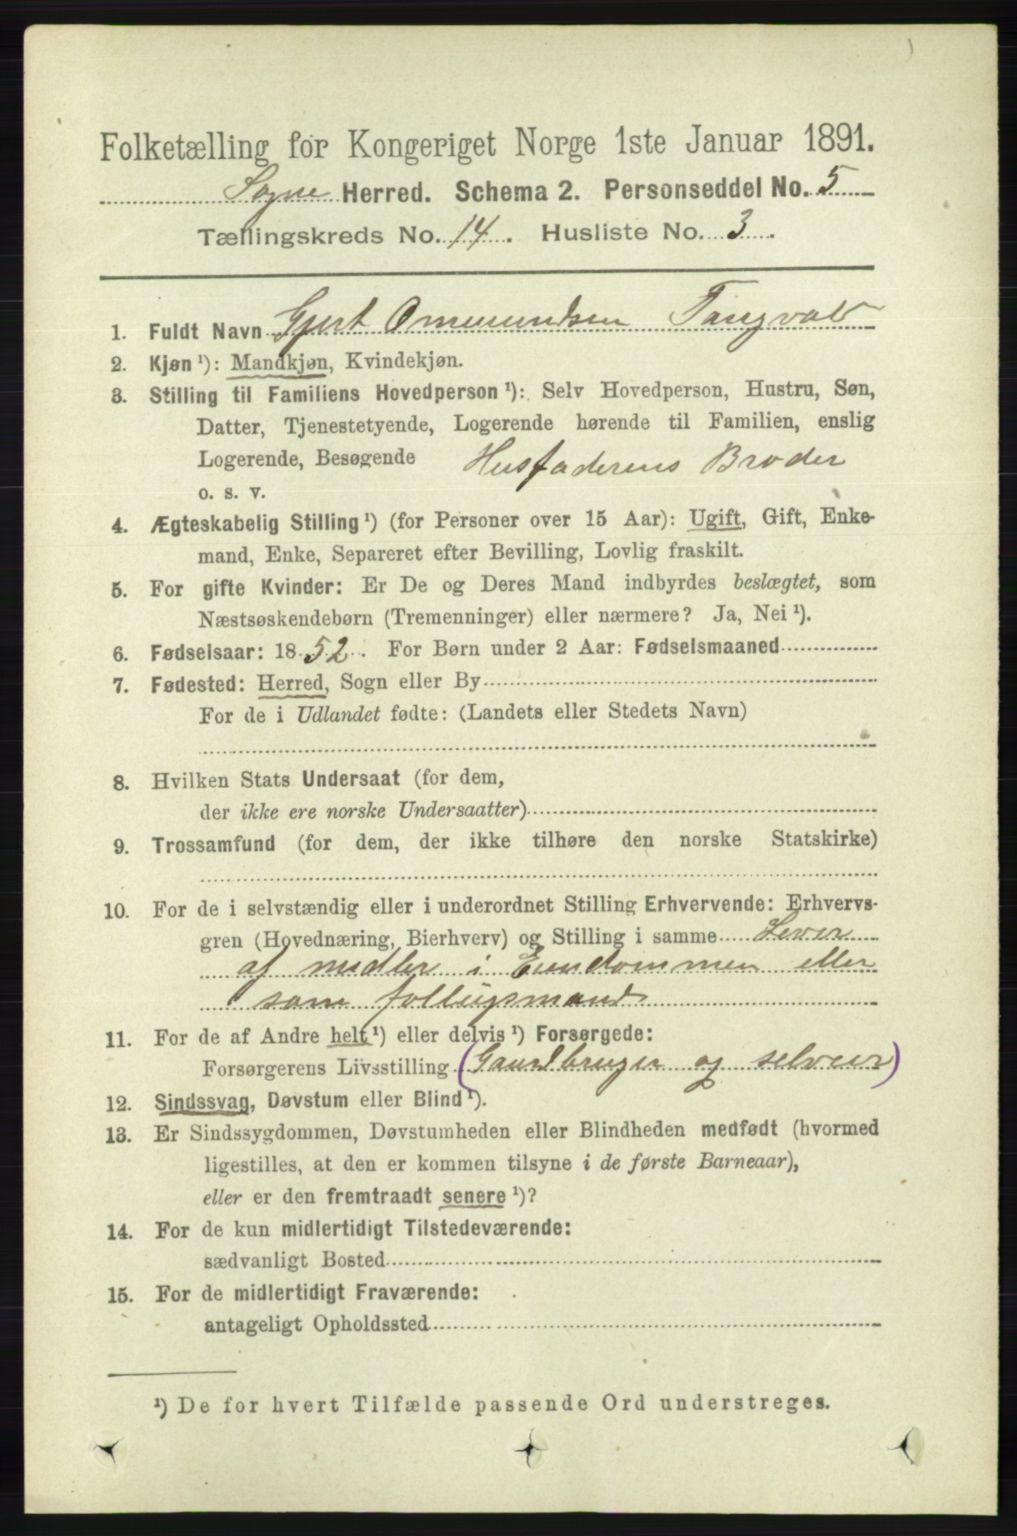 Folketælling for Kongeriget Norge 1ste Januar 1891.
Søgne Herred. Schema 2. Personseddel No. 5
Tællingskreds No. 14. Husliste No. 3.
1. Fuldt Navn Gjert Ommundsen Tangvald
2. Kjøn ¹): Mandkjøn, Kvindekjøn.
3. Stilling til Familiens Hovedperson ¹): Selv Hovedperson, Hustru, Søn,
Datter, Tjenestetyende, Logerende hørende til Familien, enslig
Logerende, Besøgende Husfaderens Broder
o. s. v.
4. Ægteskabelig Stilling ¹) (for Personer over 15 Aar): Ugift, Gift, Enke-
mand, Enke, Separeret efter Bevilling, Lovlig fraskilt.
5. For gifte Kvinder: Er De og Deres Mand indbyrdes beslægtet, som
Næstsøskendebørn (Tremenninger) eller nærmere? Ja, Nei ¹).
6. Fødselsaar: 1852. For Børn under 2 Aar: Fødselsmaaned
7. Fødested: Herred, Sogn eller By
For de i Udlandet fødte: (Landets eller Stedets Navn)
8. Hvilken Stats Undersaat (for dem,
der ikke ere norske Undersaatter)
9. Trossamfund (for dem, der ikke tilhøre den norske Statskirke)
10. For de i selvstændig eller i underordnet Stilling Erhvervende: Erhvervs-
gren (Hovednæring, Bierhverv) og Stilling i samme Lever
af midler i Eiendommen eller
som follugsmand
11. For de af Andre helt ¹) eller delvis ¹) Forsørgede:
Forsørgerens Livsstilling (Gaardbruger og selveier)
12. Sindssvag, Døvstum eller Blind ¹).
13. Er Sindssygdommen, Døvstumheden eller Blindheden medfødt (hvormed
ligestilles, at den er kommen tilsyne i de første Barneaar),
eller er den fremtraadt senere ¹)?
14. For de kun midlertidigt Tilstedeværende:
sædvanligt Bosted
15. For de midlertidigt Fraværende:
antageligt Opholdssted
¹) De for hvert Tilfælde passende Ord understreges.